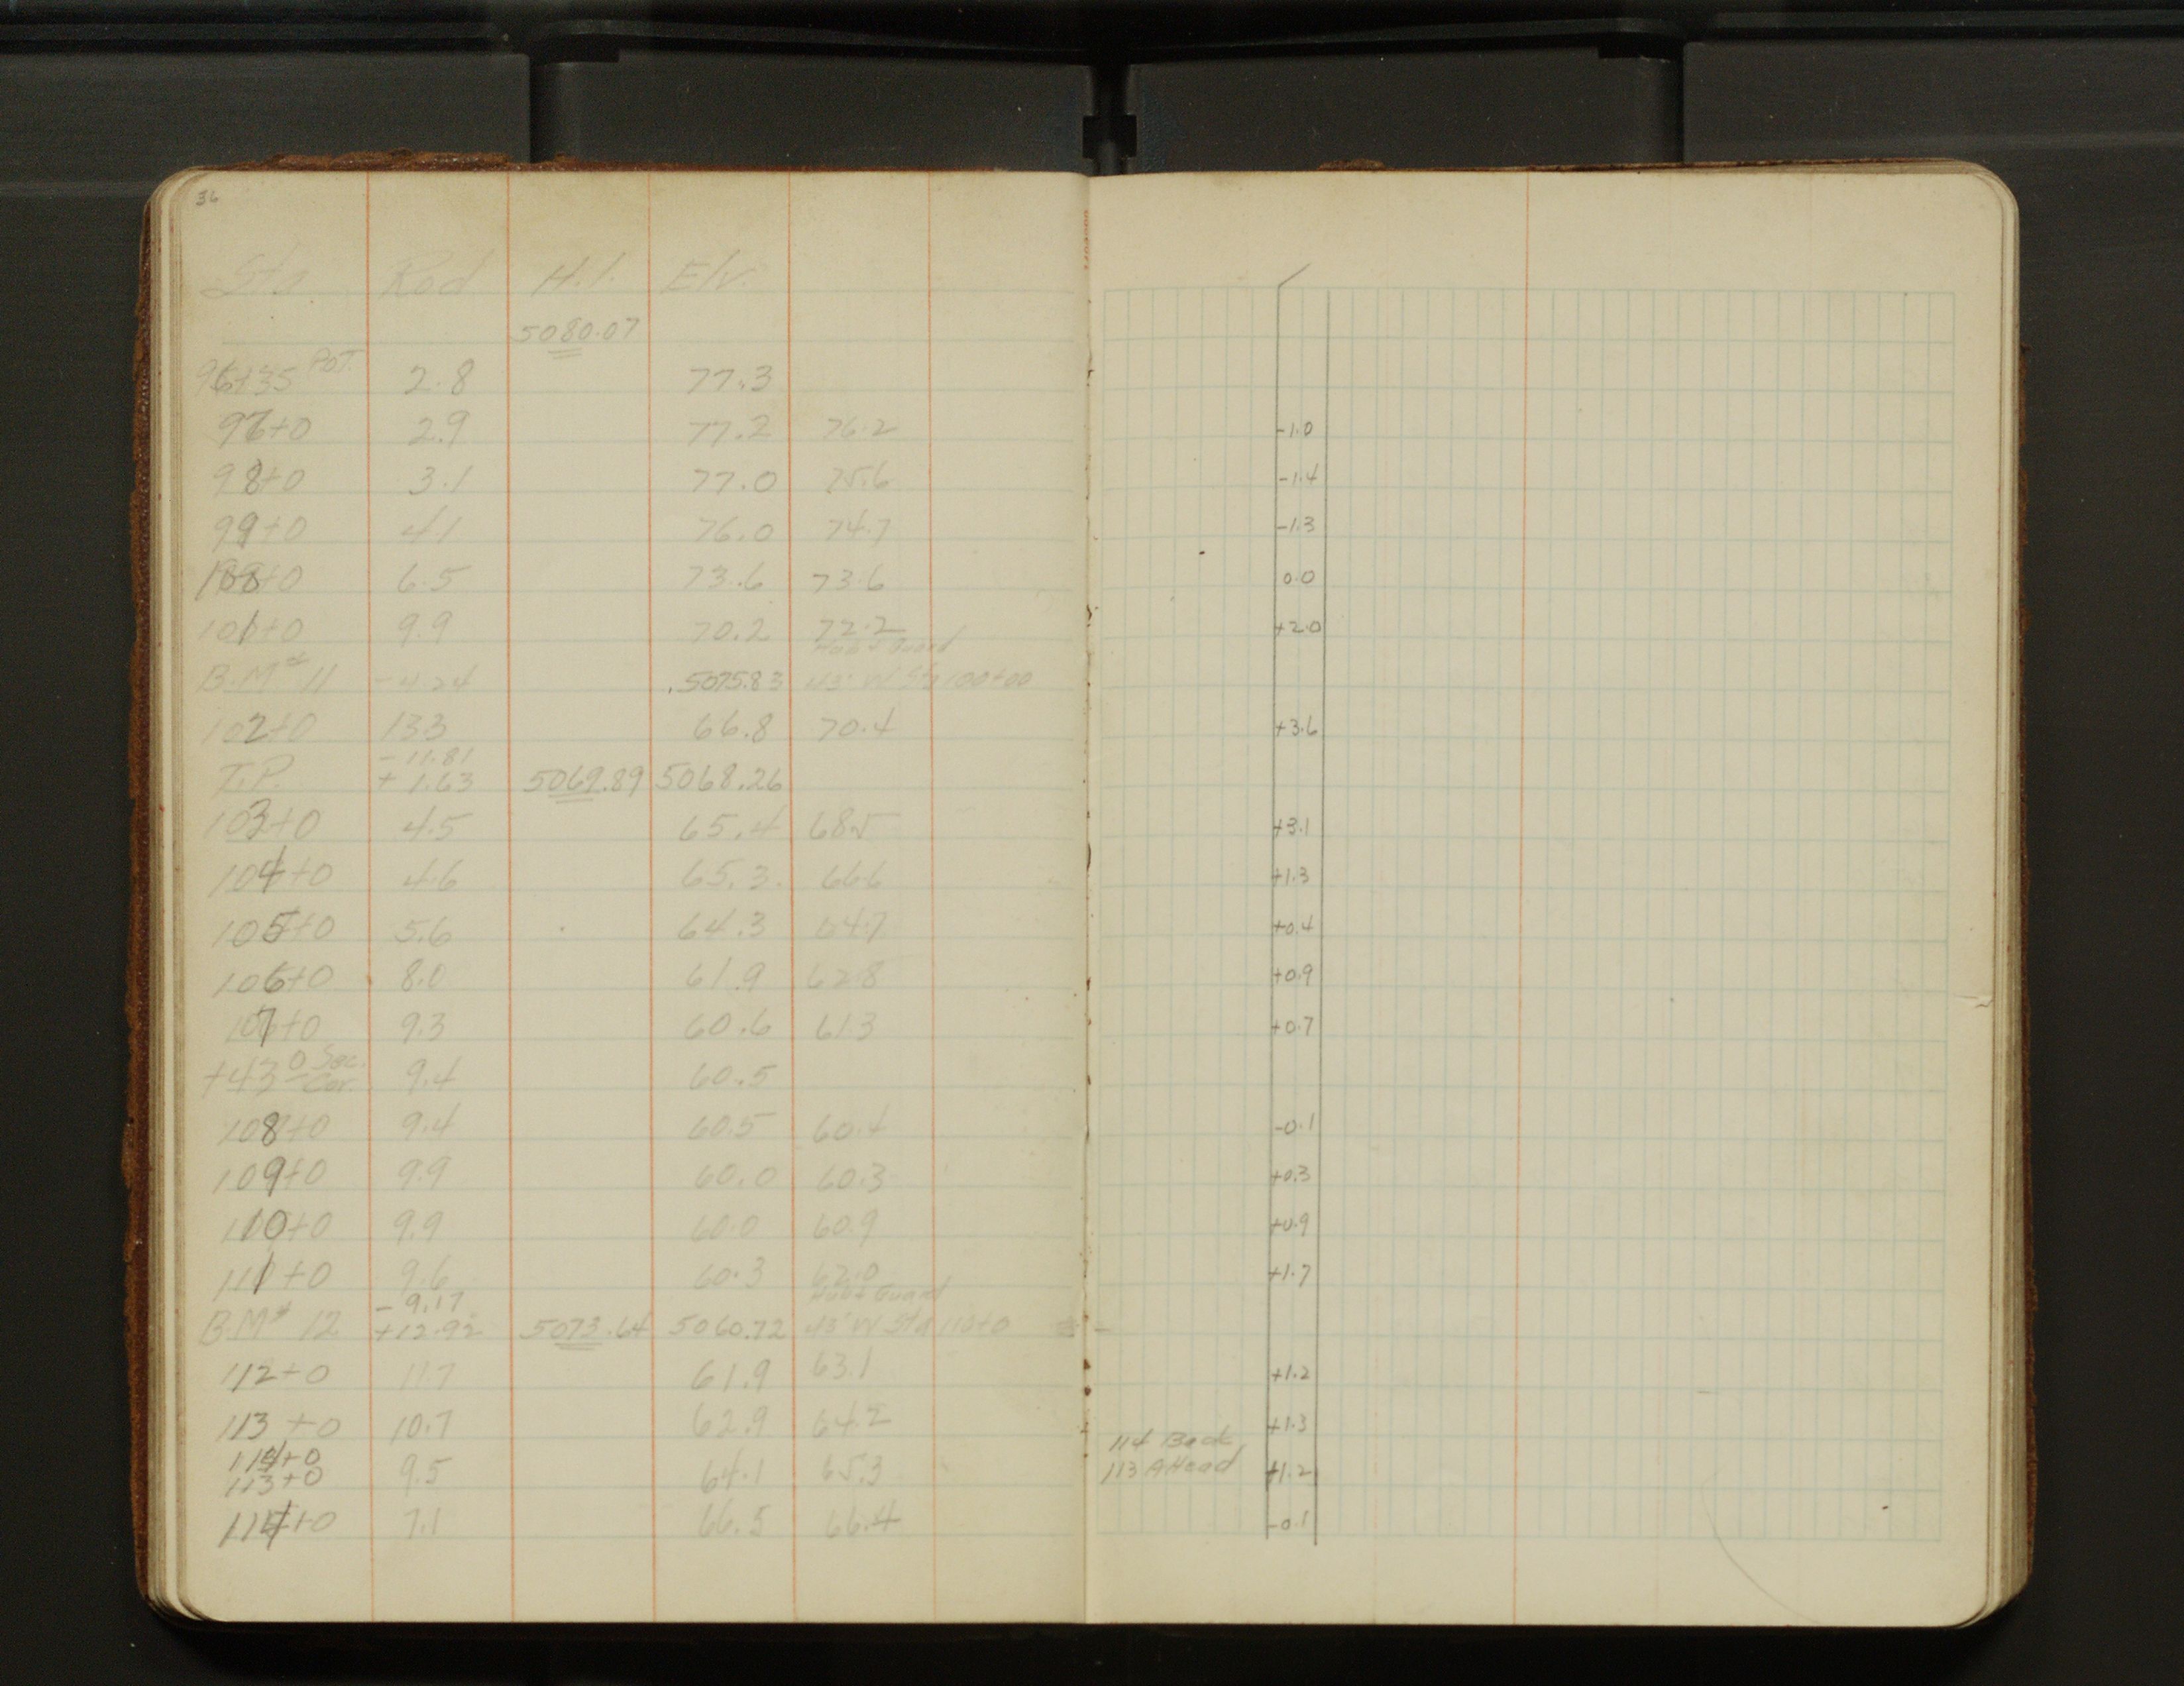 36
Sta Rod H.I. Elv.
5080.07
96+35 POT. 2.8 77.3
97+0 2.9 77.2 76.2 -1.0
98+0 3.1 77.0 75.6 -1.4
99+0 4.1 76.0 74.7 -1.3
100+0 6.5 73.6 73.6 0.0
101+0 9.9 70.2 72.2 +2.0
Hub & Guard
B.M# 11 -4.24 5075.83 43' W Sta 100+00
102+0 13.3 66.8 70.4 +3.6
-11.81
T.P. +1.63 5069.89 5068.26
103+0 4.5 65.4 68.5 +3.1
104+0 4.6 65.3 66.6 +1.3
105+0 5.6 64.3 64.7 +0.4
106+0 8.0 61.9 62.8 +0.9
107+0 9.3 60.6 61.3 +0.7
+43.0 Sec. Cor. 9.4 60.5
108+0 9.4 60.5 60.4 -0.1
109+0 9.9 60.0 60.3 +0.3
110+0 9.9 60.0 60.9 +0.9
111+0 9.6 60.3 62.0 +1.7
-9.17 Hub & Guard
B.M# 12 +12.92 5073.64 5060.72 43' W Sta 110+0
112+0 11.7 61.9 63.1 +1.2
113+0 10.7 62.9 64.2 +1.3
114+0 114 Back
113+0 9.5 64.1 65.3 113 AHead +1.2
114+0 7.1 66.5 66.4 -0.1